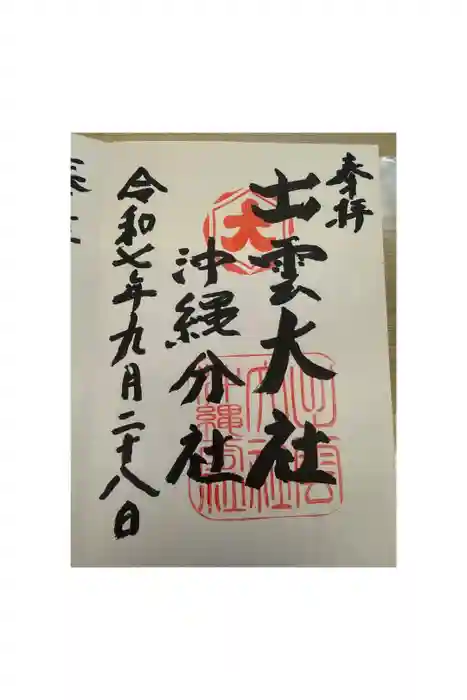 奉拝
出雲大社
沖縄分社
令和七年九月二十八日
大
出雲
大社
沖縄
分社